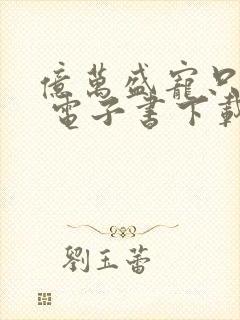 億萬盛寵只
電子書下載
劉玉蕾